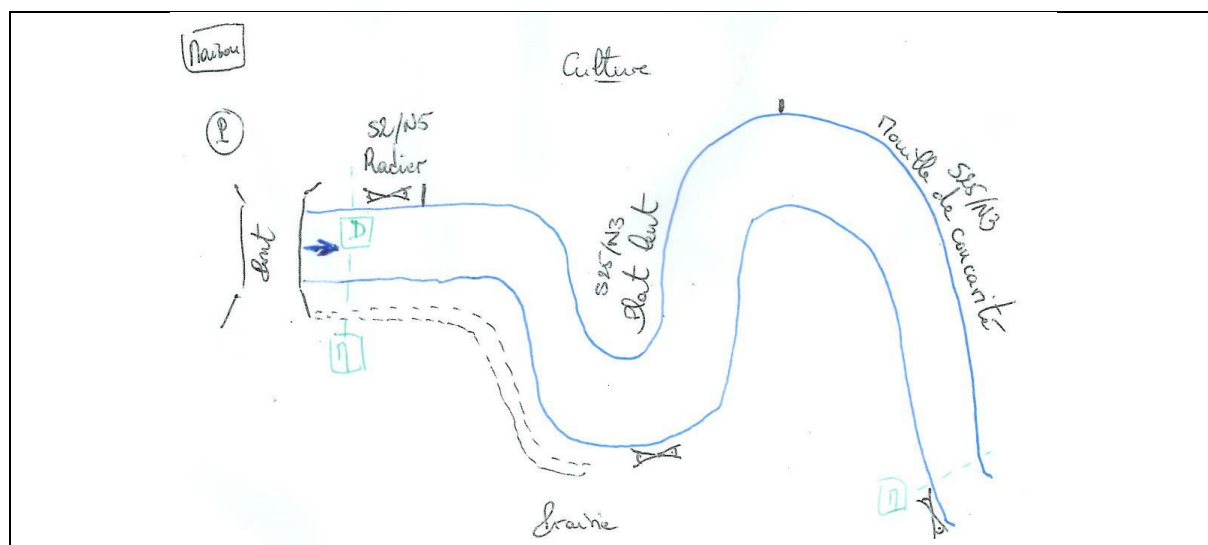 Maison
Culture
P
S2/N5
Radier
Pont
D
S25/N3
Plat lent
S25/N3
Mouille de concavité
Prairie